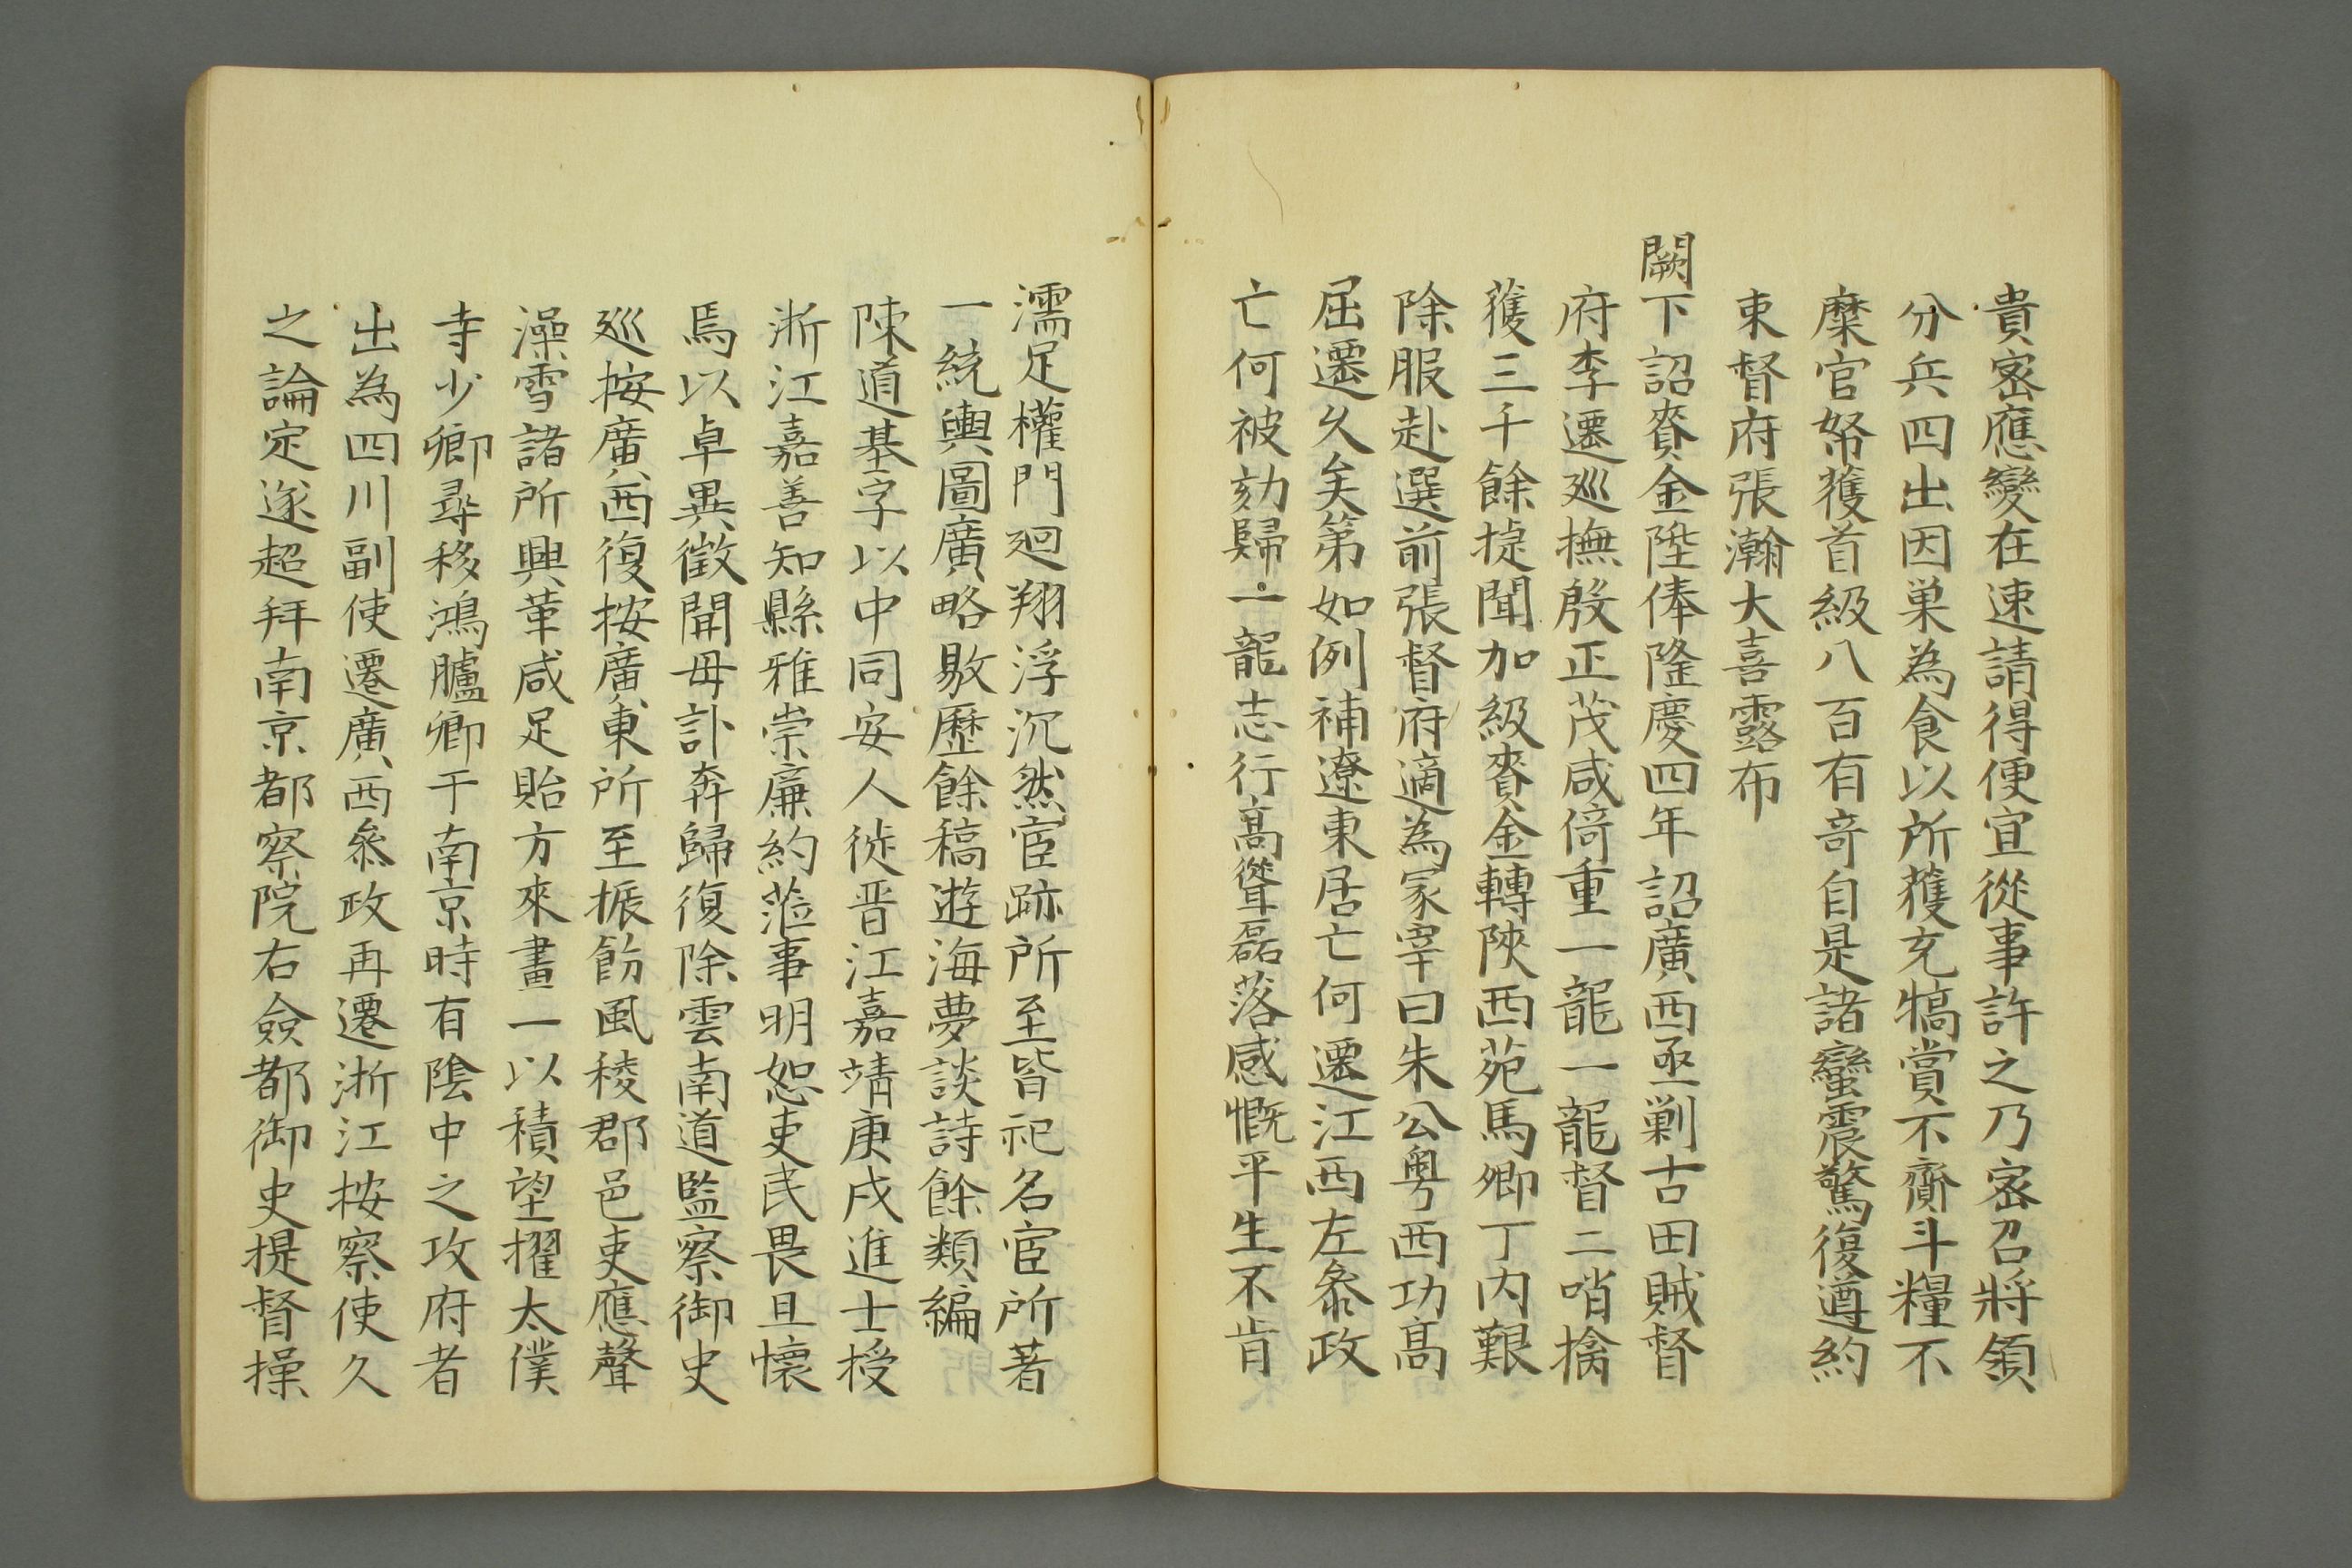 貴密應變在速請得便宜從事許之乃密召將領
分兵四出因巢為食以所獲充犒賞不齎斗糧不
糜官帑獲首級八百有奇自是諸蠻震驚復遵約
東督府張瀚大喜露布
闕下詔賚金陞俸隆慶四年詔廣西亟剿古田賊督
府李遷廵撫殷正茂咸倚重一龍一龍督二哨擒
獲三千餘㨗聞加級賚金轉陝西苑馬卿丁内艱
除服赴選前張督府適為冡宰曰朱公粤西功高
屈遷久矣第如例補遼東居亡何遷江西左叅政
亡何被劾歸一龍志行高聳磊落感慨平生不肯
濡足權門廻翔浮沉然宦跡所至皆祀名宦所著
一統輿圖廣略敭歷餘稿遊海夢談詩餘類編
陳道基字以中同安人徙晋江嘉靖庚戌進士授
浙江嘉善知縣雅崇廉約蒞事明恕吏民畏且懷
焉以卓異徵聞母訃奔歸復除雲南道監察御史
廵按廣西復按廣東所至振飭風稜郡邑吏應聲
澡雪諸所興革咸足貽方來畫一以積望擢太僕
寺少卿尋移鴻臚卿于南京時有陰中之攻府者
出為四川副使遷廣西叅政再遷浙江按察使久
之論定遂超拜南京都察院右僉都御史提督操